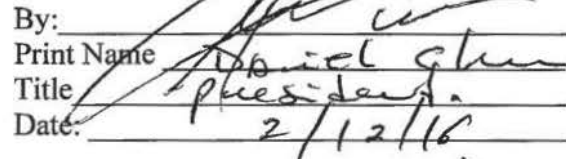 By:
Print Name Daniel
Title President.
Date: 2/12/16